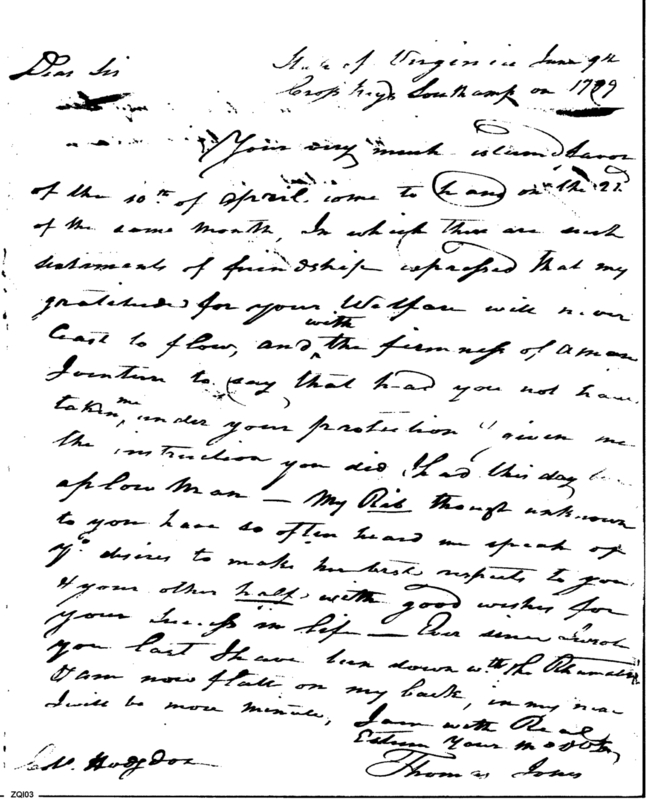 State of Virginia June 9th
Dear Sir
Cross Keys Southampton 1789
Your very much esteemd favor
of the 10th of April come to hand on the 22d
of the same month, In which there are such
sentiments of friendship expressed that my
gratitude for your Welfare will never
Cease to flow, and with the firmness of a man
I venture to say that had you not have
taken me under your protection & given me
the instruction you did I had this day
a plow man — My Rib though unknown
to you have so often heard me speak of
yo. desires to make her best respects to you
& your other half with good wishes for
your Success in life — Ever since I wrote
you last I have been down wth the Rhumatism
& am now flatt on my back, in my
I will be more minute, I am with Real
Esteem Your
Hodgdon
Thomas Jones
ZQI03